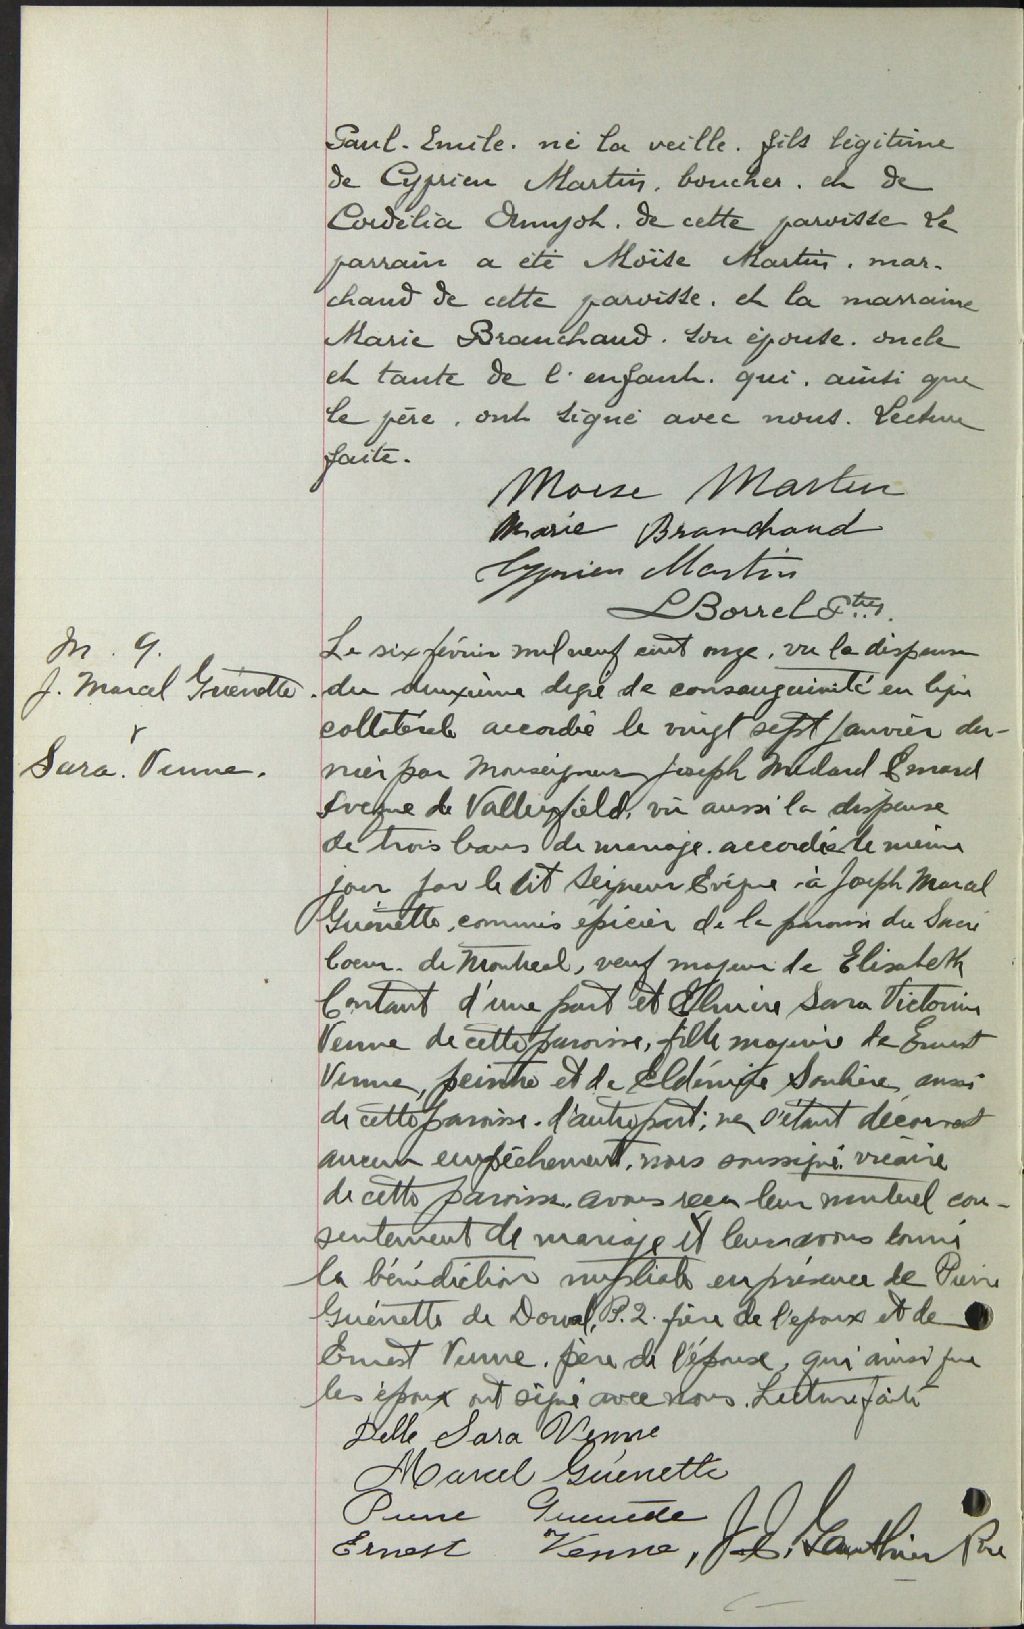 Paul-Emile. né la veille. fils légitime
de Cyprien Martin. boucher. et de
Cordélia Amyot. de cette paroisse Le
parrain a été Moïse Martin. mar-
chand de cette paroisse. et la marraine
Marie Branchaud. son épouse. oncle
et tante de l'enfant. qui. ainsi que
le père. ont signé avec nous. Lecture
faite.
Moise Martin
Marie Branchaud
Cyprien Martin
L Borrel Ptre.
M. 9.
J. Marcel Guénette.
&
Sara. Venne.
Le six février mil neuf cent onze, vu la dispense
du deuxième degré de consanguinité en ligne
collatérale accordée le vingt sept janvier der-
nier par Monseigneur Joseph Médard Emard
Evêque de Valleyfield, vu aussi la dispense
de trois bans de mariage accordée le même
jour par le dit Seigneur Evêque à Joseph Marcel
Guénette, commis épicier de la paroisse du Sacré
Coeur de Montreal, veuf majeur de Elisabeth
Contant d'une part et Elmire Sara Victorine
Venne de cette paroisse, fille majeure de Ernest
Venne, peintre et de Soulière aussi
de cette paroisse. d'autre part; ne s'étant découvert
aucun empêchement, nous soussigné vicaire
de cette paroisse avons reçu leur mutuel con-
sentement de mariage et leur avons donné
la bénédiction nuptiale en présence de Pierre
Guénette de Dorval, P.2. frère de l'époux et de
Ernest Venne. père de l'épouse, qui ainsi que
les époux ont signé avec nous. Lecture faite
Delle Sara Venne
Marcel Guenette
Pierre Guenette
Ernest Venne, Gauthier Ptre